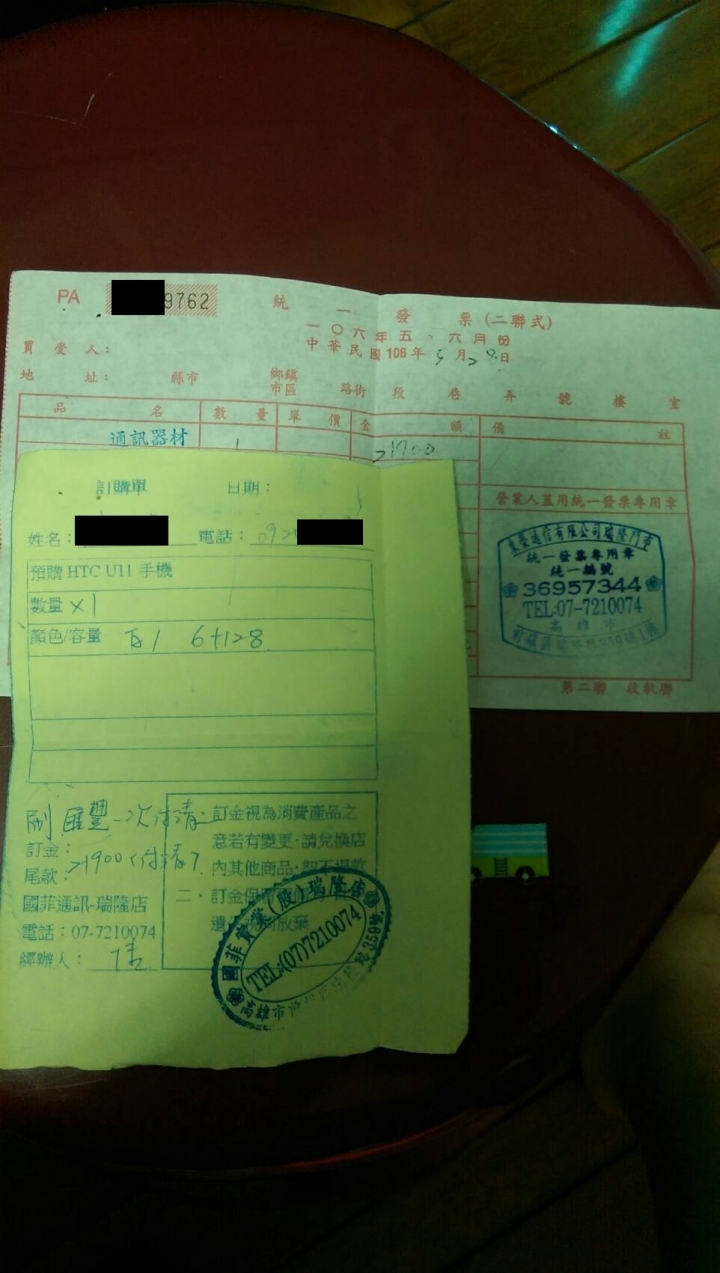 PA 9762 統一發票(二聯式)
一〇六年五、六月份
中華民國106年5月29日
買受人：
地址： 縣市 鄉鎮市區 路街 段 巷 弄 號 樓 室
品名 數量 單價 金額 備註
通訊器材 1 21900
營業人蓋用統一發票專用章
通信有限公司瑞隆門市
統一發票專用章
統一編號
36957344
TEL:07-7210074
高雄市
第二聯 收執聯
訂購單 日期：
姓名： 電話：092
預購 HTC U11 手機
數量 x1
顏色/容量 6+128
刷匯豐一次付清
訂金：
尾款：21900(付清)
國菲通訊-瑞隆店
電話：07-7210074
經辦人：
訂金視為消費產品之
意若有變更，請兌換店
內其他商品，恕不退款
二、訂金保
國菲實業(股)瑞隆店
TEL:(07)7210074
高雄市 路359號